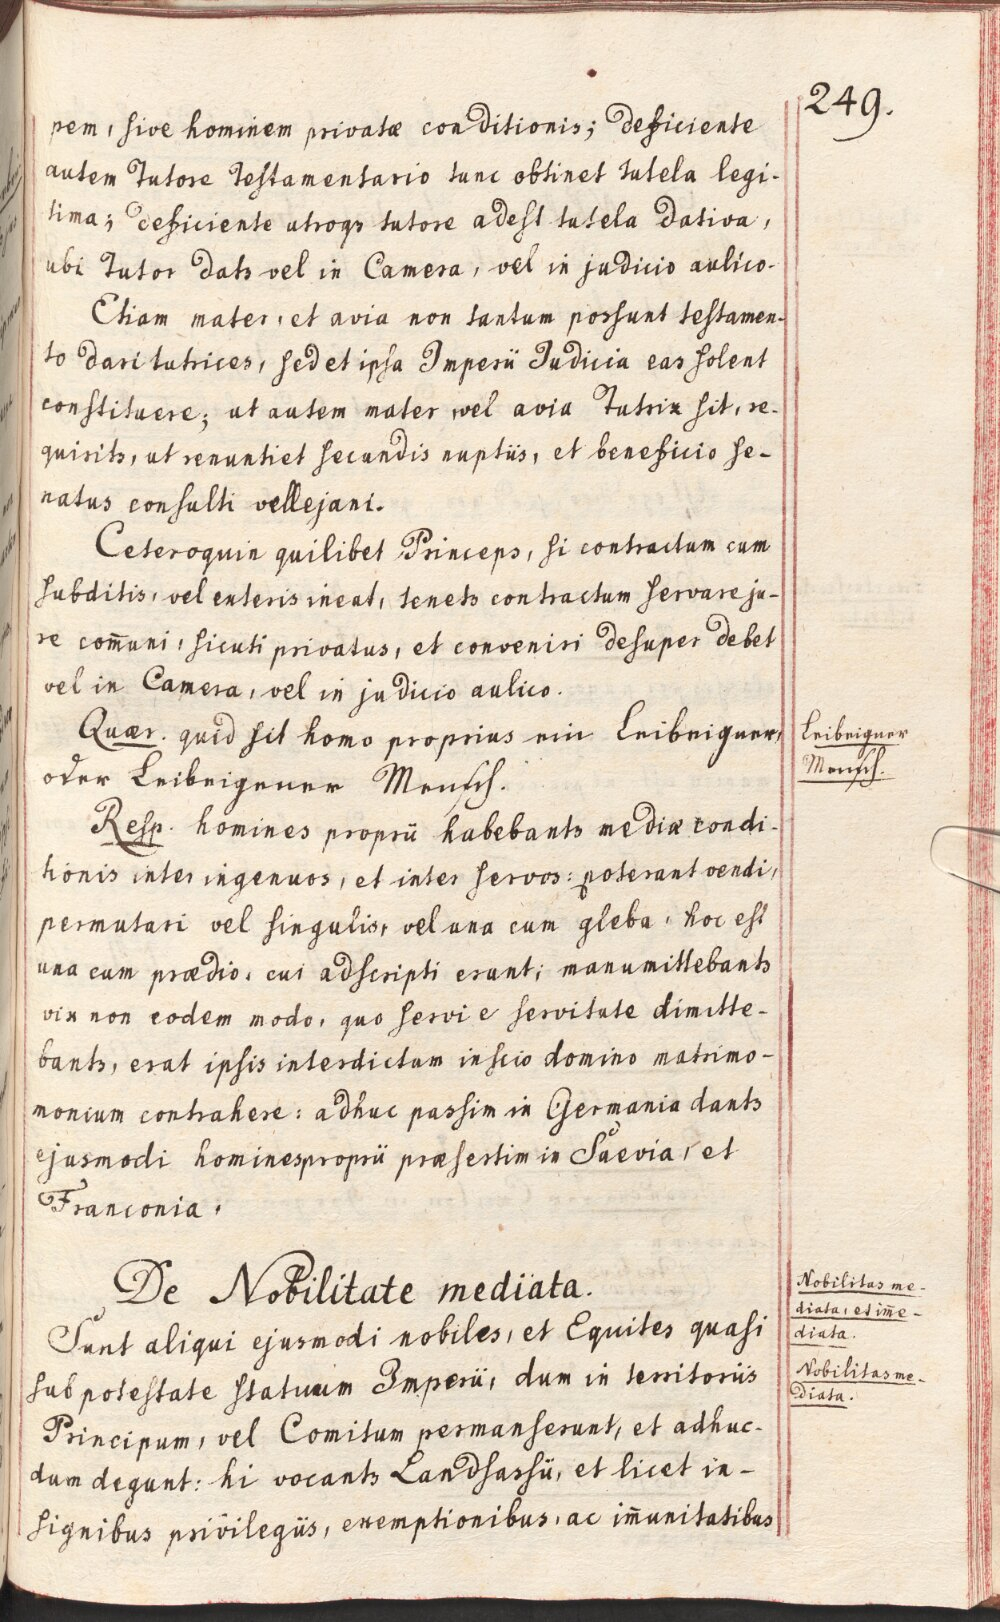 249.
pem, sive hominem privatæ conditionis; deficiente
autem Tutore Testamentario tunc obtinet tutela legi-
tima; deficiente utroqs tutore adest tutela dativa,
ubi Tutor dats vel in Camera, vel in judicio aulico.
Etiam mater, et avia non tantum possunt testamen-
to dari tutrices, sed et ipsa Imperii Judicia eas solent
constituere; ut autem mater, vel avia Tutrix sit, re-
quirits, ut renuntiet secundis nuptiis, et beneficio se-
natus consulti vellejani.
Ceteroquin quilibet Princeps, si contractum cum
subditis, vel exteris ineat, tenets contractum servare ju-
re com̄uni, sicuti privatus, et conveniri desuper debet
vel in Camera, vel in judicio aulico.
Quær. quid sit homo proprius ein Leibeigner,
oder Leibeigener Mensch.
Leibeigner
Mensch.
Resp. homines proprii habebants mediæ condi-
tionis inter ingenuos, et inter servos: poterant vendi,
permutari vel singulis, vel una cum gleba, hoc est
una cum prædio, cui adscripti erant; manumittebants
vix non eodem modo, quo servi e servitute dimitte-
bants, erat ipsis interdictum inscio domino matrimo-
monium contrahere: adhuc passim in Germania dants
ejusmodi homines proprii præsertim in Suevia, et
Franconia.
De Nobilitate mediata.
Nobilitas me-
diata, et im̄e-
diata.
Sunt aliqui ejusmodi nobiles, et Equites quasi
sub potestate statuum Imperii, dum in territoriis
Nobilitas me-
diata.
Principum, vel Comitum permanserunt, et adhuc-
dum degunt: hi vocants Landsassii, et licet in-
signibus privilegiis, exemptionibus, ac im̄unitatibus